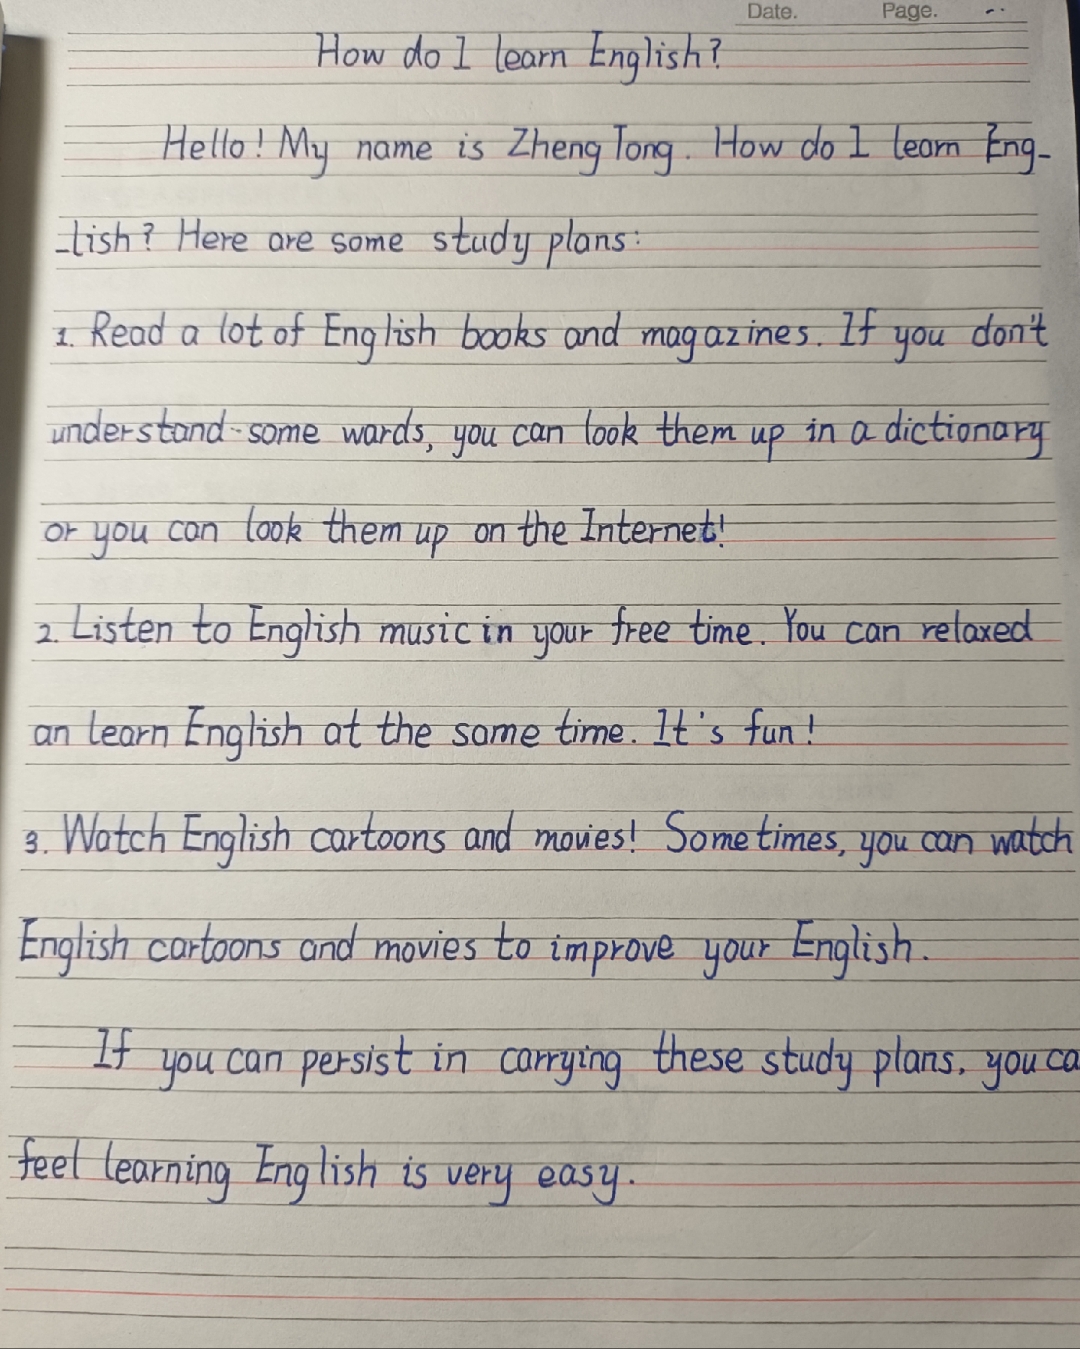 Date. Page.
How do I learn English?
Hello! My name is Zheng Tong. How do I learn Eng-
-lish? Here are some study plans:
1. Read a lot of English books and magazines. If you don't
understand some wards, you can look them up in a dictionary
or you can look them up on the Internet!
2. Listen to English music in your free time. You can relaxed
an learn English at the same time. It's fun!
3. Watch English cartoons and movies! Sometimes, you can watch
English cartoons and movies to improve your English.
If you can persist in carrying these study plans, you ca
feel learning English is very easy.